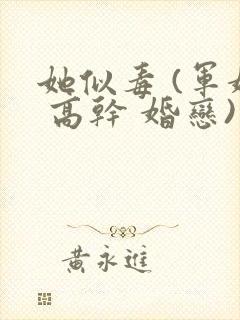 她似毒 (軍
高幹 婚戀)
黃永進